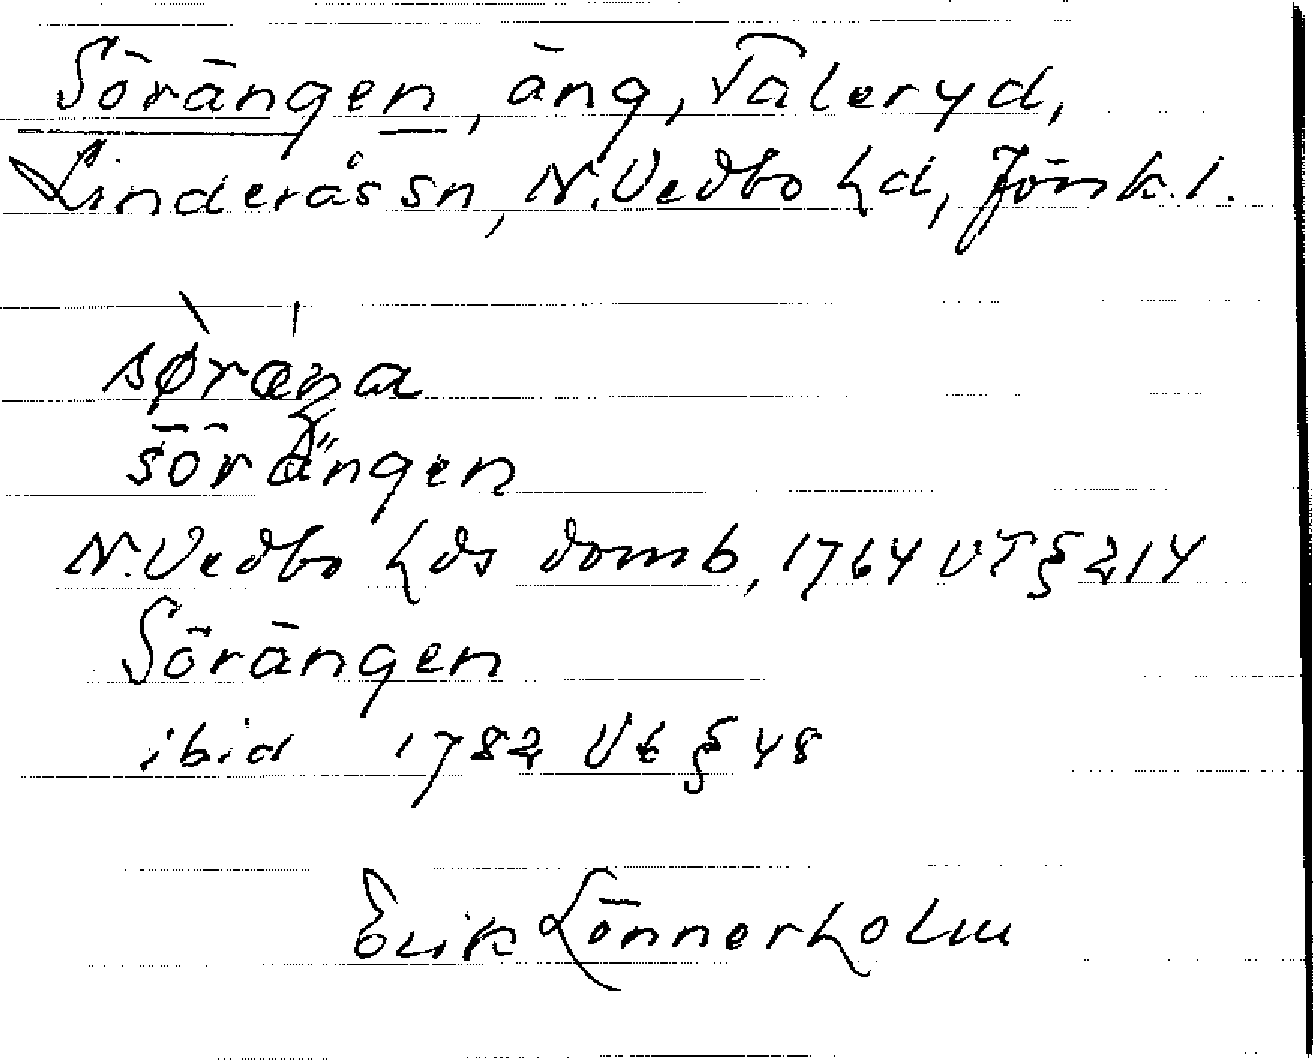 Sörängen, äng, Taleryd,
Linderås sn, N. Vedbo hd, Jönk. l.
sø̀ræ̍ŋa
sörängen
N. Vedbo hds domb, 1764 VT § 214
Sörängen
ibid 1782 Vt § 48
Erik Lönnerholm